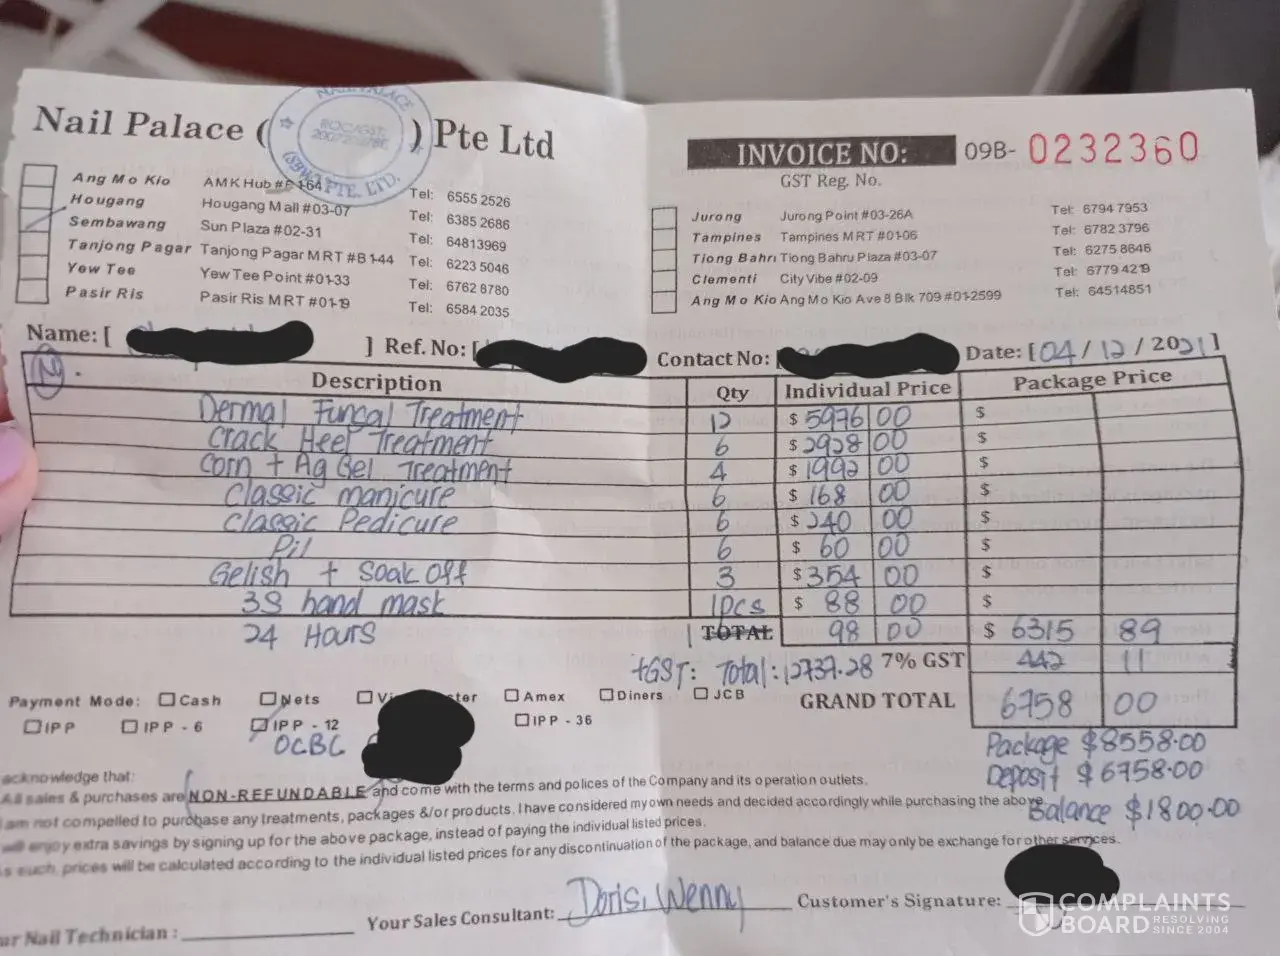 Nail Palace ( ) Pte Ltd
NAIL PALACE
(SBW) PTE. LTD.
INVOICE NO: 09B- 0232360
GST Reg. No.
Ang Mo Kio AMK Hub #B1-64 Tel: 6555 2526
Hougang Hougang Mall #03-07 Tel: 6385 2686
Sembawang Sun Plaza #02-31 Tel: 64813969
Tanjong Pagar Tanjong Pagar MRT #B1-44 Tel: 6223 5046
Yew Tee Yew Tee Point #01-33 Tel: 6762 8780
Pasir Ris Pasir Ris MRT #01-19 Tel: 6584 2035
Jurong Jurong Point #03-26A Tel: 6794 7953
Tampines Tampines MRT #01-06 Tel: 6782 3796
Tiong Bahru Tiong Bahru Plaza #03-07 Tel: 6275 8646
Clementi City Vibe #02-09 Tel: 6779 4219
Ang Mo Kio Ang Mo Kio Ave 8 Blk 709 #01-2599 Tel: 64514851
Name: [ ] Ref. No: [ Contact No: [ Date: [04/12/2021]
N. Description Qty Individual Price Package Price
Dermal Fungal Treatment 12 $ 5976 00 $
Crack Heel Treatment 6 $ 2928 00 $
Corn + Ag Gel Treatment 4 $ 1992 00 $
Classic manicure 6 $ 168 00 $
Classic Pedicure 6 $ 240 00 $
Pil 6 $ 60 00 $
Gelish + Soak Off 3 $ 354 00 $
3S hand mask 1pcs $ 88 00 $
24 Hours 1 TOTAL 98 00 $ 6315 89
+GST: Total: 12737.28 7% GST 442 11
GRAND TOTAL 6758 00
Payment Mode: Cash Nets ter Amex Diners JCB
IPP IPP - 6 IPP - 12 IPP - 36
OCBC
Package $8558.00
Deposit $6758.00
Balance $1800.00
acknowledge that:
All sales & purchases are NON-REFUNDABLE and come with the terms and polices of the Company and its operation outlets.
am not compelled to purchase any treatments, packages &/or products. I have considered my own needs and decided accordingly while purchasing the above.
will enjoy extra savings by signing up for the above package, instead of paying the individual listed prices.
s such, prices will be calculated according to the individual listed prices for any discontinuation of the package, and balance due may only be exchange for other services.
ur Nail Technician : Your Sales Consultant: Doris, Wenny Customer's Signature:
COMPLAINTS
BOARD RESOLVING
SINCE 2004